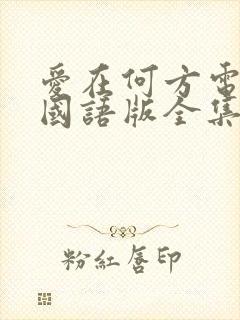 愛在何方電
國語版全集
粉紅唇印